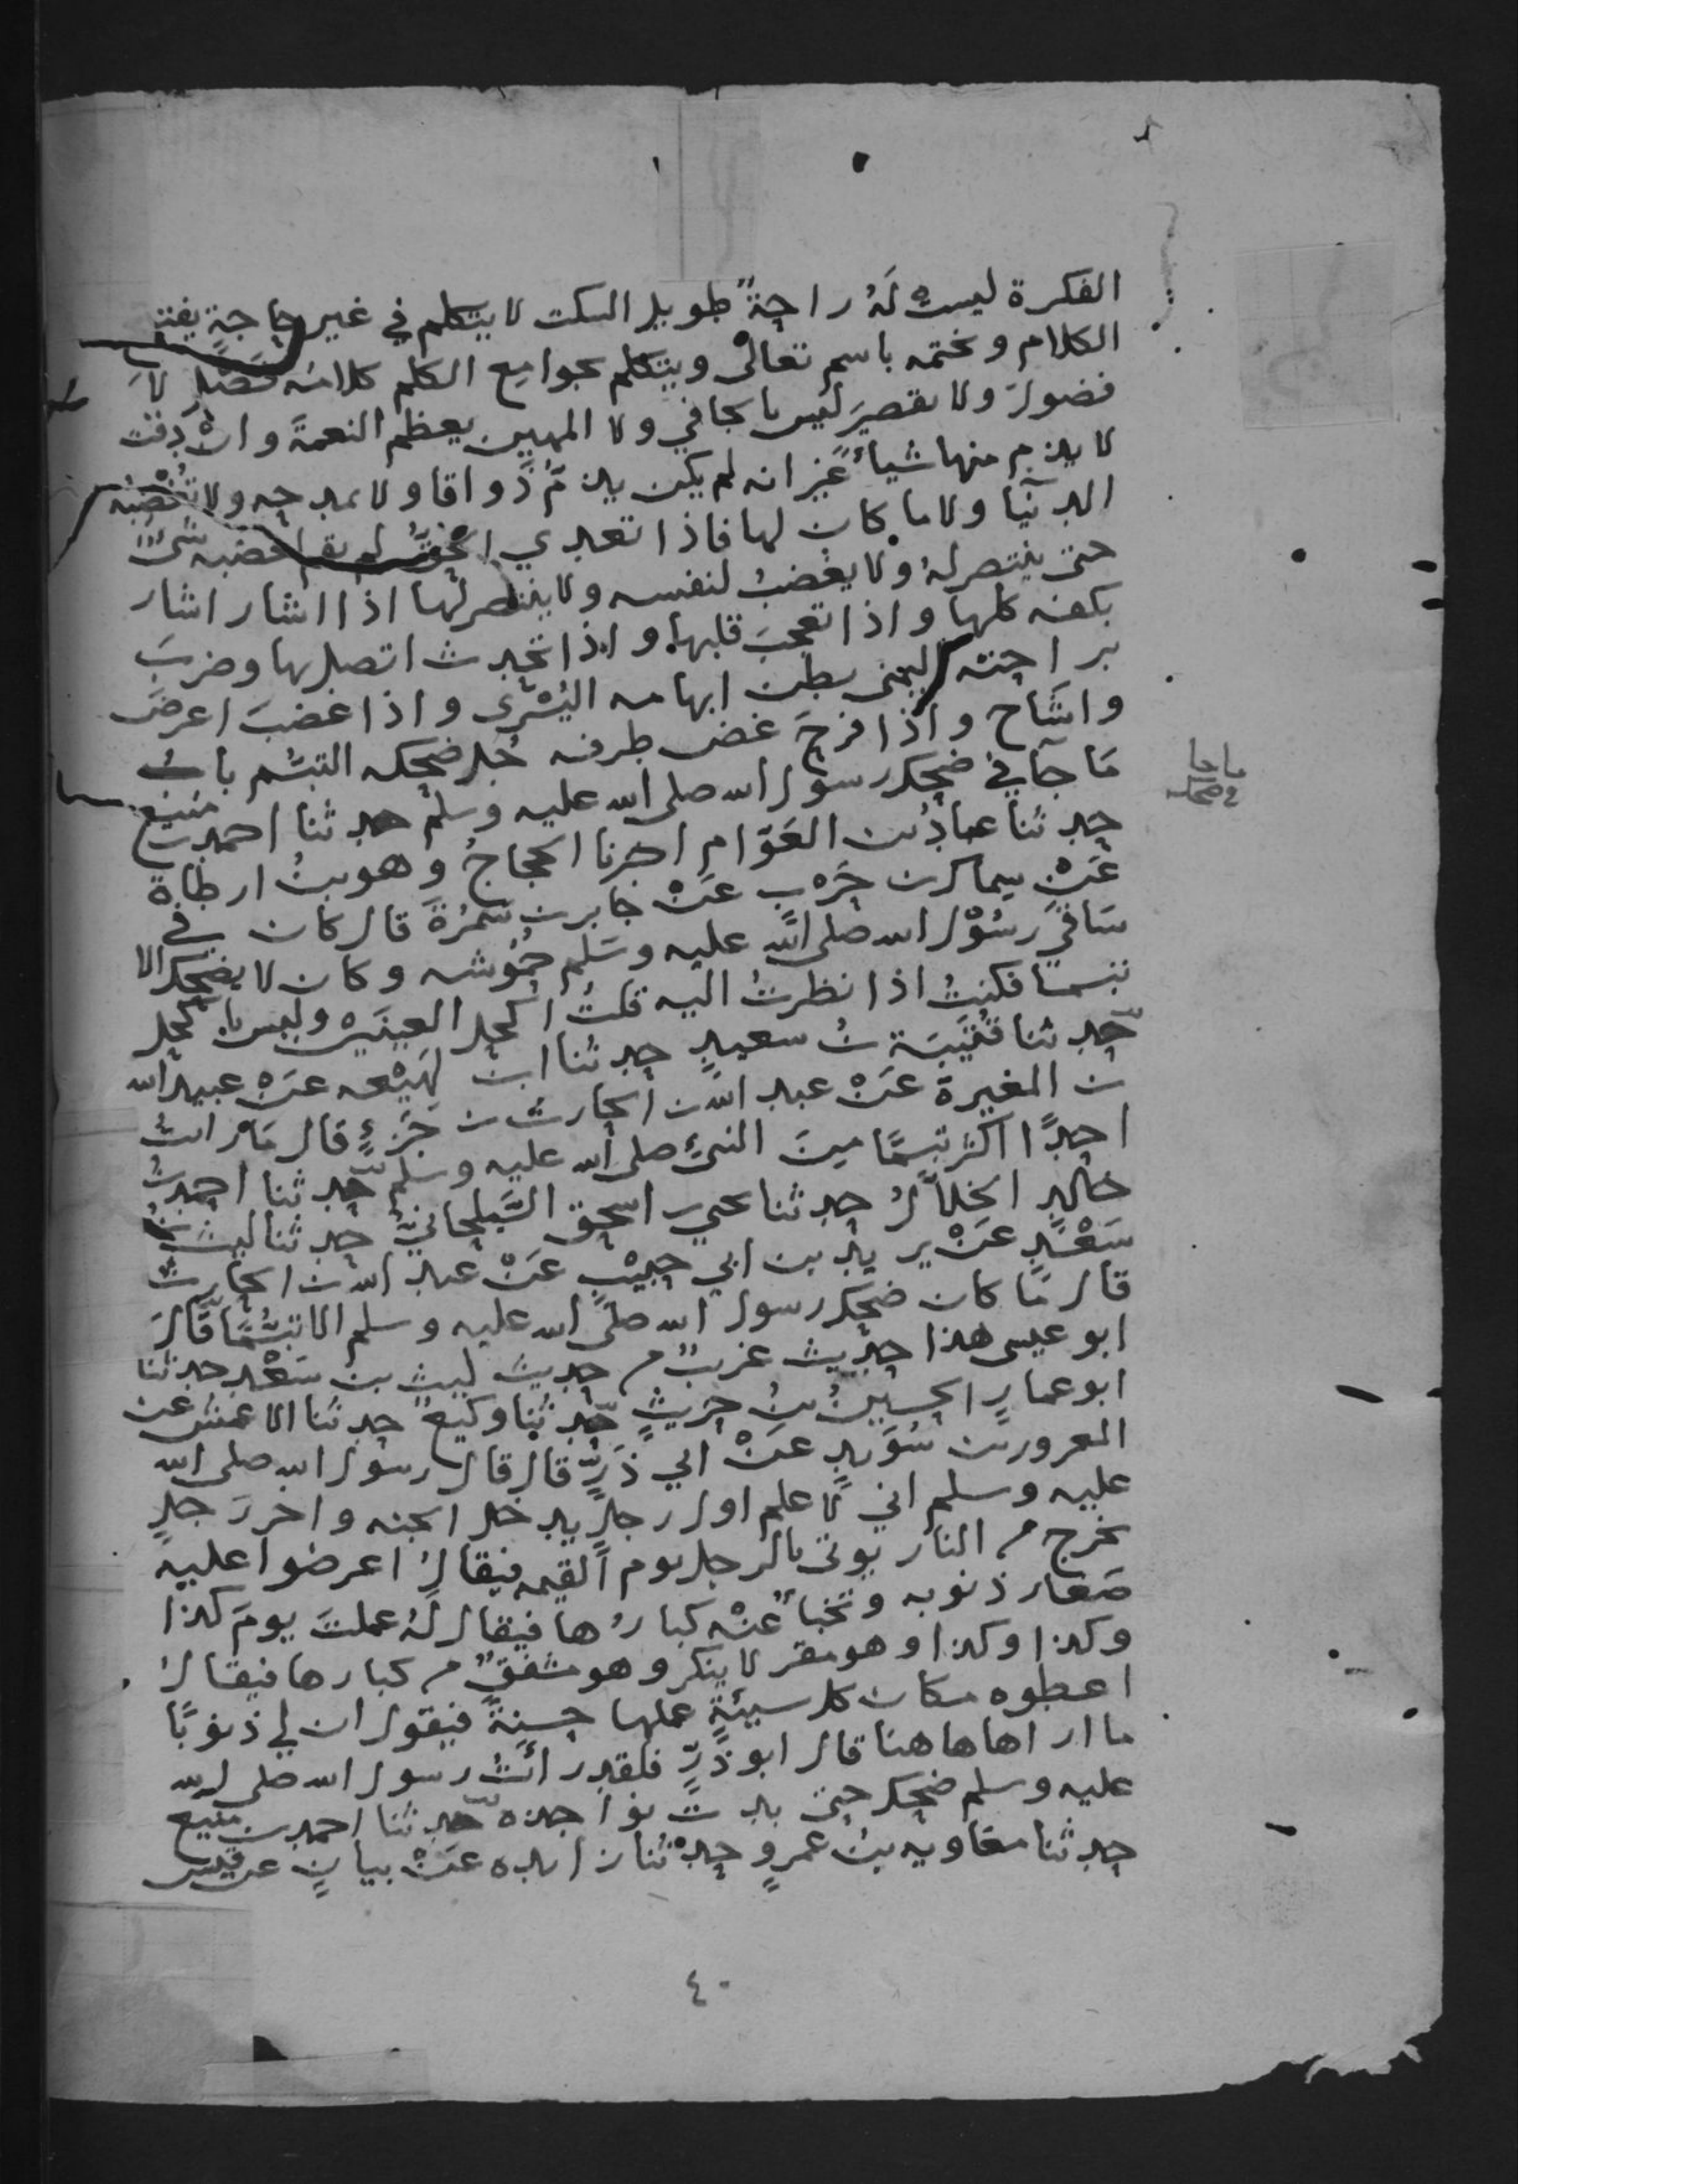 الفكرة ليست لَهُ راحةٌ طويل السكت لا يتكلم في غير حاجةٍ يفتتح
الكلام ويختمه باسم تعالى ويتكلم بجوامع الكلم كلامه فَصْلٌ لا
فضولَ ولا تقصيرَ ليس بالجافي ولا المهين يعظم النعمةَ وان دقت
لا يذم منها شيأً غير انه لم يكن يذمّ ذواقا ولا يمدحه ولا تُغْضِبُه
الدنيا ولا ما كان لها فاذا تعدي الحَقُّ لم يقم لغضبه شيٌ
حتى ينتصر لهُ ولا يغضبُ لنفسه ولا ينتصر لها اذا اشار اشار
بكفه كلها واذا تعجبَ قلبها واذا تحدث اتصل بها وضربَ
براحته اليمنى بطن ابهامه اليُسْرى واذا غضبَ اعرضَ
واشاح واذا فرحَ غض طرفه جُل ضحكه التبسُّم بابُ
مَا جآ في ضحك رسول الله صلى الله عليه وسلم حدثنا احمد بن منيع
حدثنا عبادُ بن العَوّام اخبرنا الحجاجُ وهو بنُ ارطاة
عَنْ سِماك بن حَرْبٍ عَنْ جابر بن سَمُرَةَ قال كان في
سَاقَيْ رسُوْل الله صلى الله عليه وسَلم حُمُوشه وكان لا يضحك الا
تبسما فكنتُ اذا نظرتُ اليه قلتُ اكحل العينَين وليس باكحل
حدثنا قُتَيْبَة بنُ سعيدٍ حدثنا ابن لَهِيْعه عَنْ عبيد الله
بن المغيرة عَنْ عبد الله بن الحارث بن جَزْءٍ قال مَا رايتُ
احدًا اكثر تبسمًا مِنَ النبيّ صلى الله عليه وسلم حدثنا احمد بنُ
خالدٍ الخلاّلُ حدثنا يحيى بن اسحق السَّيلحانيُّ حدثنا ليث بنُ
سَعْدٍ عَنْ يزيد بن ابي حبيْبٍ عَنْ عبد الله بن الحارث
قال مَا كان ضحك رسول الله صلى الله عليه وسلم الا تبسُّمًا قالَ
ابو عيسى هذا حديث غريبٌ من حديث ليث بن سَعْدٍ حدثنا
ابو عمارٍ الحسينُ بنُ حُريثٍ حدثنا وكيعٌ حدثنا الاعمش عن
المعرور بن سُوَيدٍ عَنْ ابي ذَرٍّ قال قال رسول الله صلى الله
عليه وسلم اني لاَعلم اول رجلٍ يدخل الجنه واخر رَجلٍ
يخرج من النار يوتى بالرجل يوم القيمه فيقالُ اعرضوا عليه
صَغار ذنوبه وتخبأ عنْه كبارُها فيقال لهُ عملتَ يومَ كذا
وكذا وكذا وهو مقر لا ينكر وهو مشفقٌ من كبارها فيقالُ
اعطوه مكان كل سيئةٍ عملها حسنةً فيقول ان لي ذنوبًا
ما اراها هاهنا قال ابو ذَرٍّ فلقد رأيتُ رسول الله صلى الله
عليه وسلم ضحك حتى بدت نواجذه حدثنا احمد بن منيع
حدثنا معاويه بنُ عمرٍو حدثنا زايده عَنْ بيانٍ عن قيس
ما جا
في ضحكه
٤٠